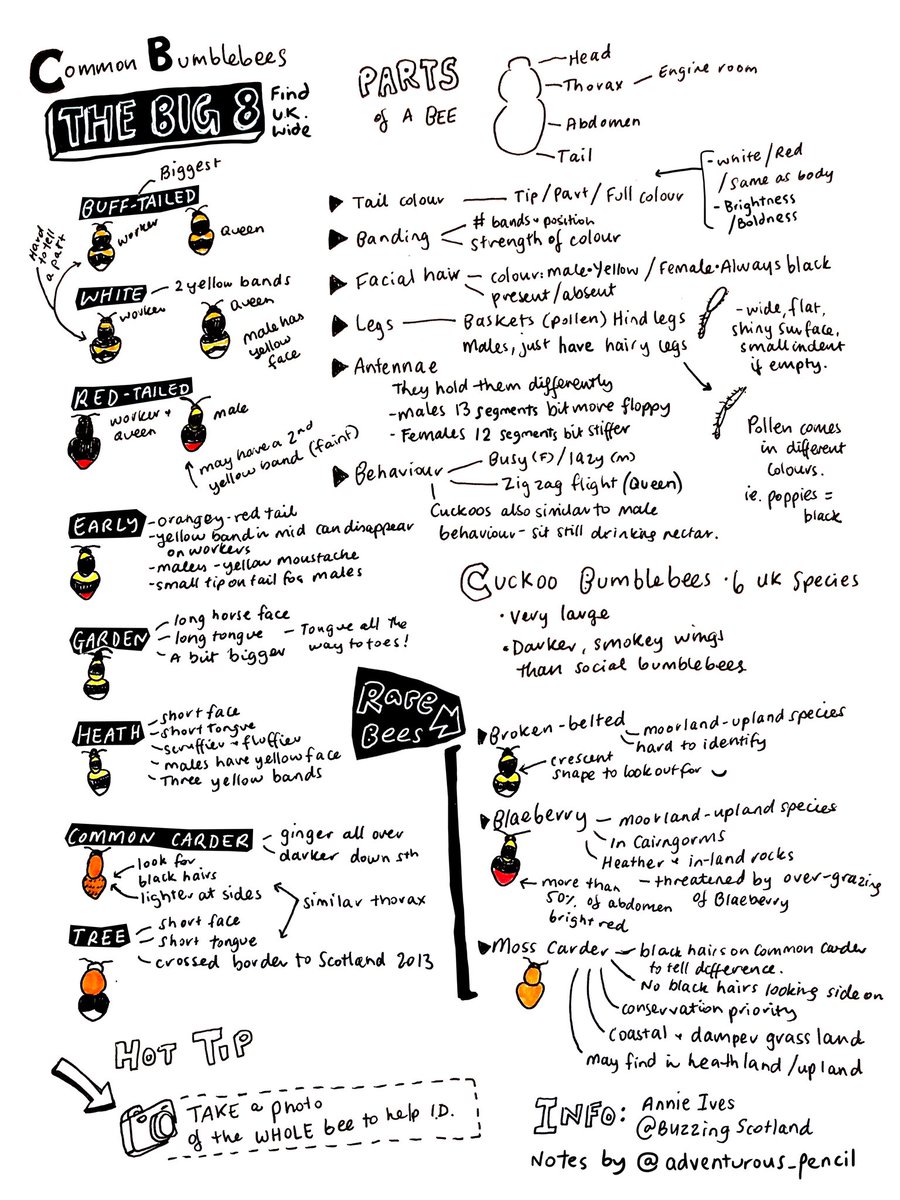 Common Bumblebees
THE BIG 8
Find
U.K.
wide
Biggest
BUFF-TAILED
worker
Queen
Hard
to tell
a part
WHITE
2 yellow bands
worker
Queen
male has
yellow
face
RED-TAILED
worker +
queen
male
may have a 2nd
yellow band (faint)
EARLY
-orangey-red tail
-yellow band in mid can disappear
on workers
-males - yellow moustache
-small tip on tail for males
GARDEN
long horse face
long tongue - Tongue all the
way to toes!
A bit bigger
HEATH
short face
short tongue
scruffier + fluffier
males have yellow face
Three yellow bands
COMMON CARDER
ginger all over
darker down sth
look for
black hairs
lighter at sides
similar thorax
TREE
short face
short tongue
crossed border to Scotland 2013
HOT TIP
TAKE a photo
of the WHOLE bee to help I.D.
PARTS
of A BEE
Head
Thorax - Engine room
Abdomen
Tail
Tail colour - Tip/Part/Full colour
-white/Red
/Same as body
-Brightness
/Boldness
Banding
# bands + position
strength of colour
Facial hair - colour: male•Yellow / Female•Always black
present/absent
Legs - Baskets (pollen) Hind legs
Males, just have hairy legs
-wide, flat,
shiny surface,
small indent
if empty.
Antennae
They hold them differently
-males 13 segments bit more floppy
- Females 12 segments bit stiffer
Pollen comes
in different
colours.
ie. poppies =
black
Behaviour
Busy (F) / lazy (m)
Zig zag flight (Queen)
Cuckoos also similar to male
behaviour - sit still drinking nectar.
Cuckoo Bumblebees • 6 UK Species
• Very large
• Darker, smokey wings
than social bumblebees
Rare
Bees
Broken-belted
moorland-upland species
hard to identify
crescent
shape to look out for
Blaeberry
moorland-upland species
In Cairngorms
Heather + in-land rocks
-threatened by over-grazing
of Blaeberry
more than
50% of abdomen
bright red
Moss Carder
black hairs on Common Carder
to tell difference.
No black hairs looking side on
conservation priority
Coastal + damper grass land
may find in heathland/upland
INFO: Annie Ives
@Buzzing Scotland
Notes by @adventurous_pencil